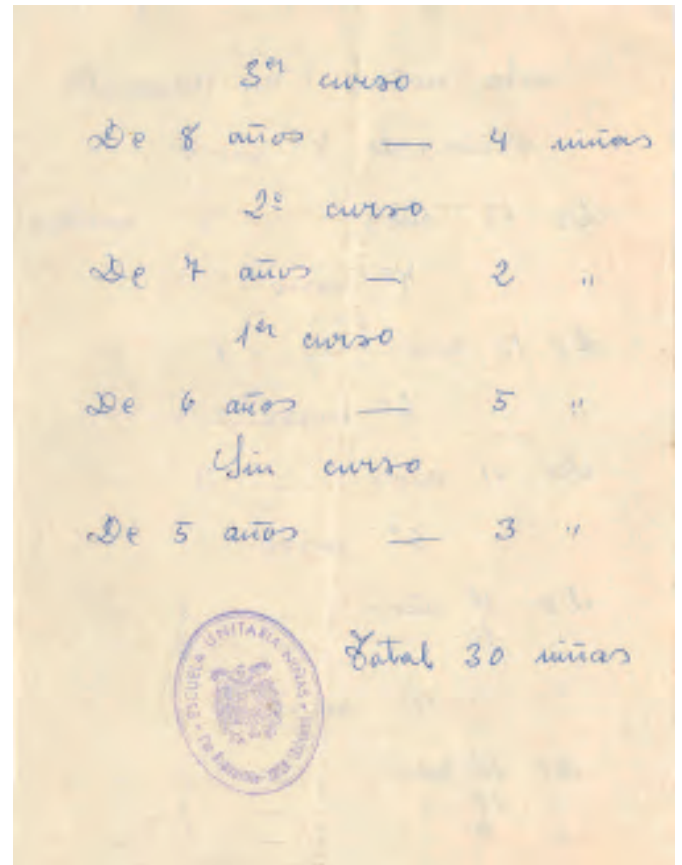 3er curso
De 8 años — 4 niñas
2º curso
De 7 años — 2 "
1er curso
De 6 años — 5 "
Sin curso
De 5 años — 3 "
Total 30 niñas
ESCUELA UNITARIA NIÑAS